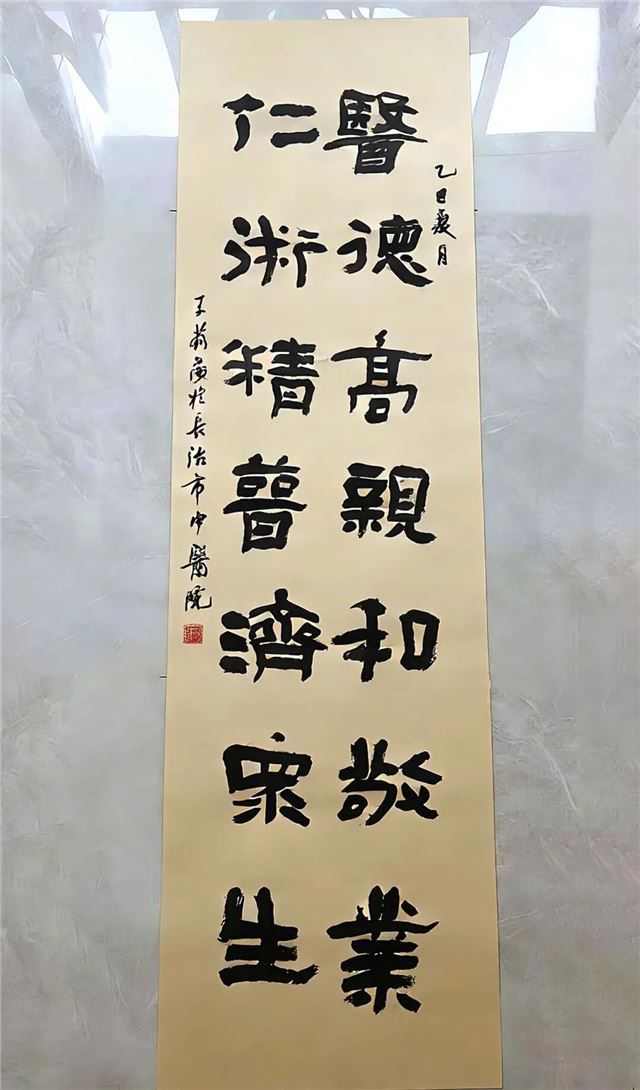 乙巳夏月
醫德高親和敬業
仁術精普濟眾生
於長治市中醫院